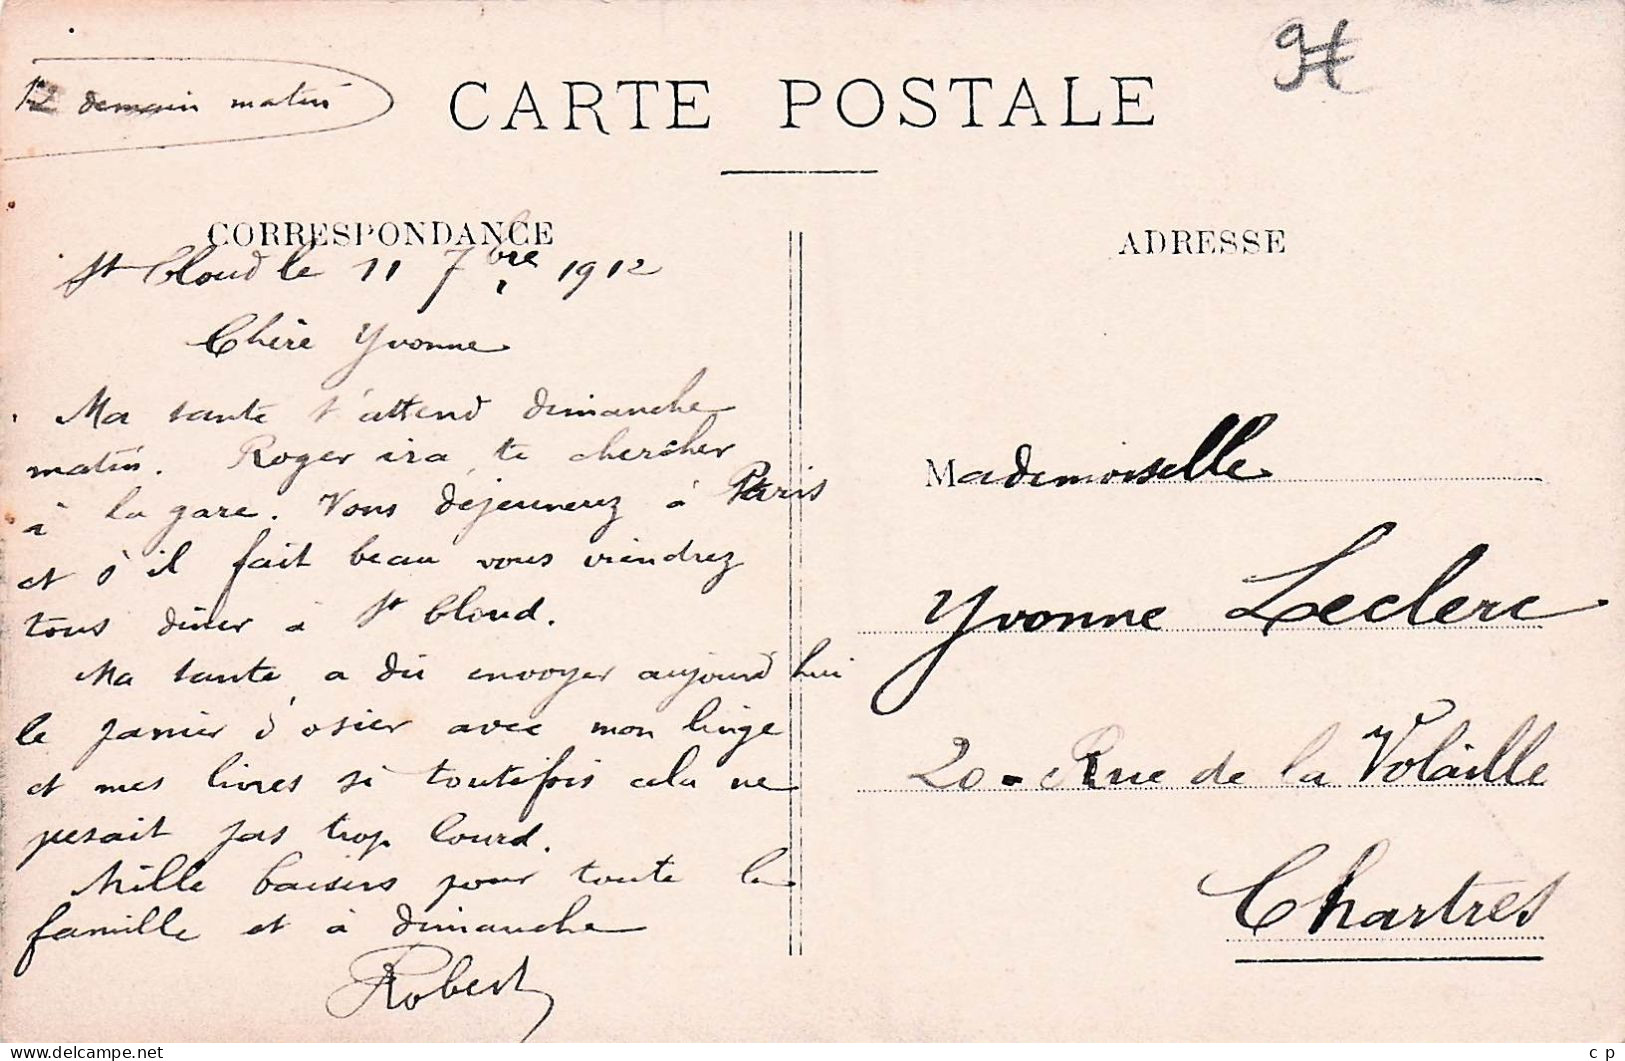 demain matin
CARTE POSTALE
9€
CORRESPONDANCE
St Cloud le 11 7bre 1912
Chère Yvonne
Ma tante t'attend dimanche
matin. Roger ira te chercher
à la gare. Vous déjeunerez à Paris
et s'il fait beau vous viendrez
tous dîner à St Cloud.
Ma tante a dû envoyer aujourd'hui
le panier d'osier avec mon linge
et mes livres si toutefois cela ne
pesait pas trop lourd.
Mille baisers pour toute la
famille et à dimanche
Robert
ADRESSE
Mademoiselle
Yvonne Leclerc
20 - Rue de la Volaille
Chartres
delcampe.net
c p